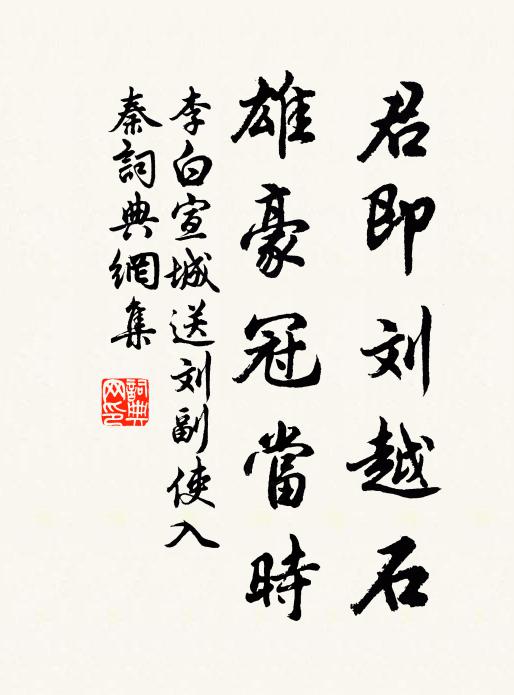 君即刘越石
雄豪冠當時
李白宣城送刘副使入
秦詞典網集
詞典网印